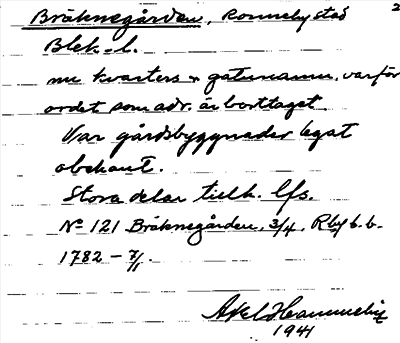 Bräknegården, Ronneby stad 2
Blek. l.
nu kvarters- o gatunamn, varför
ordet som adr. är borttaget.
Var gårdsbyggnader legat
obekant.
Stora delar tillh. lfs.
No 121 Bräknegården, 3/4, Rby b.b.
1782 - 7/1.
Axel
1941